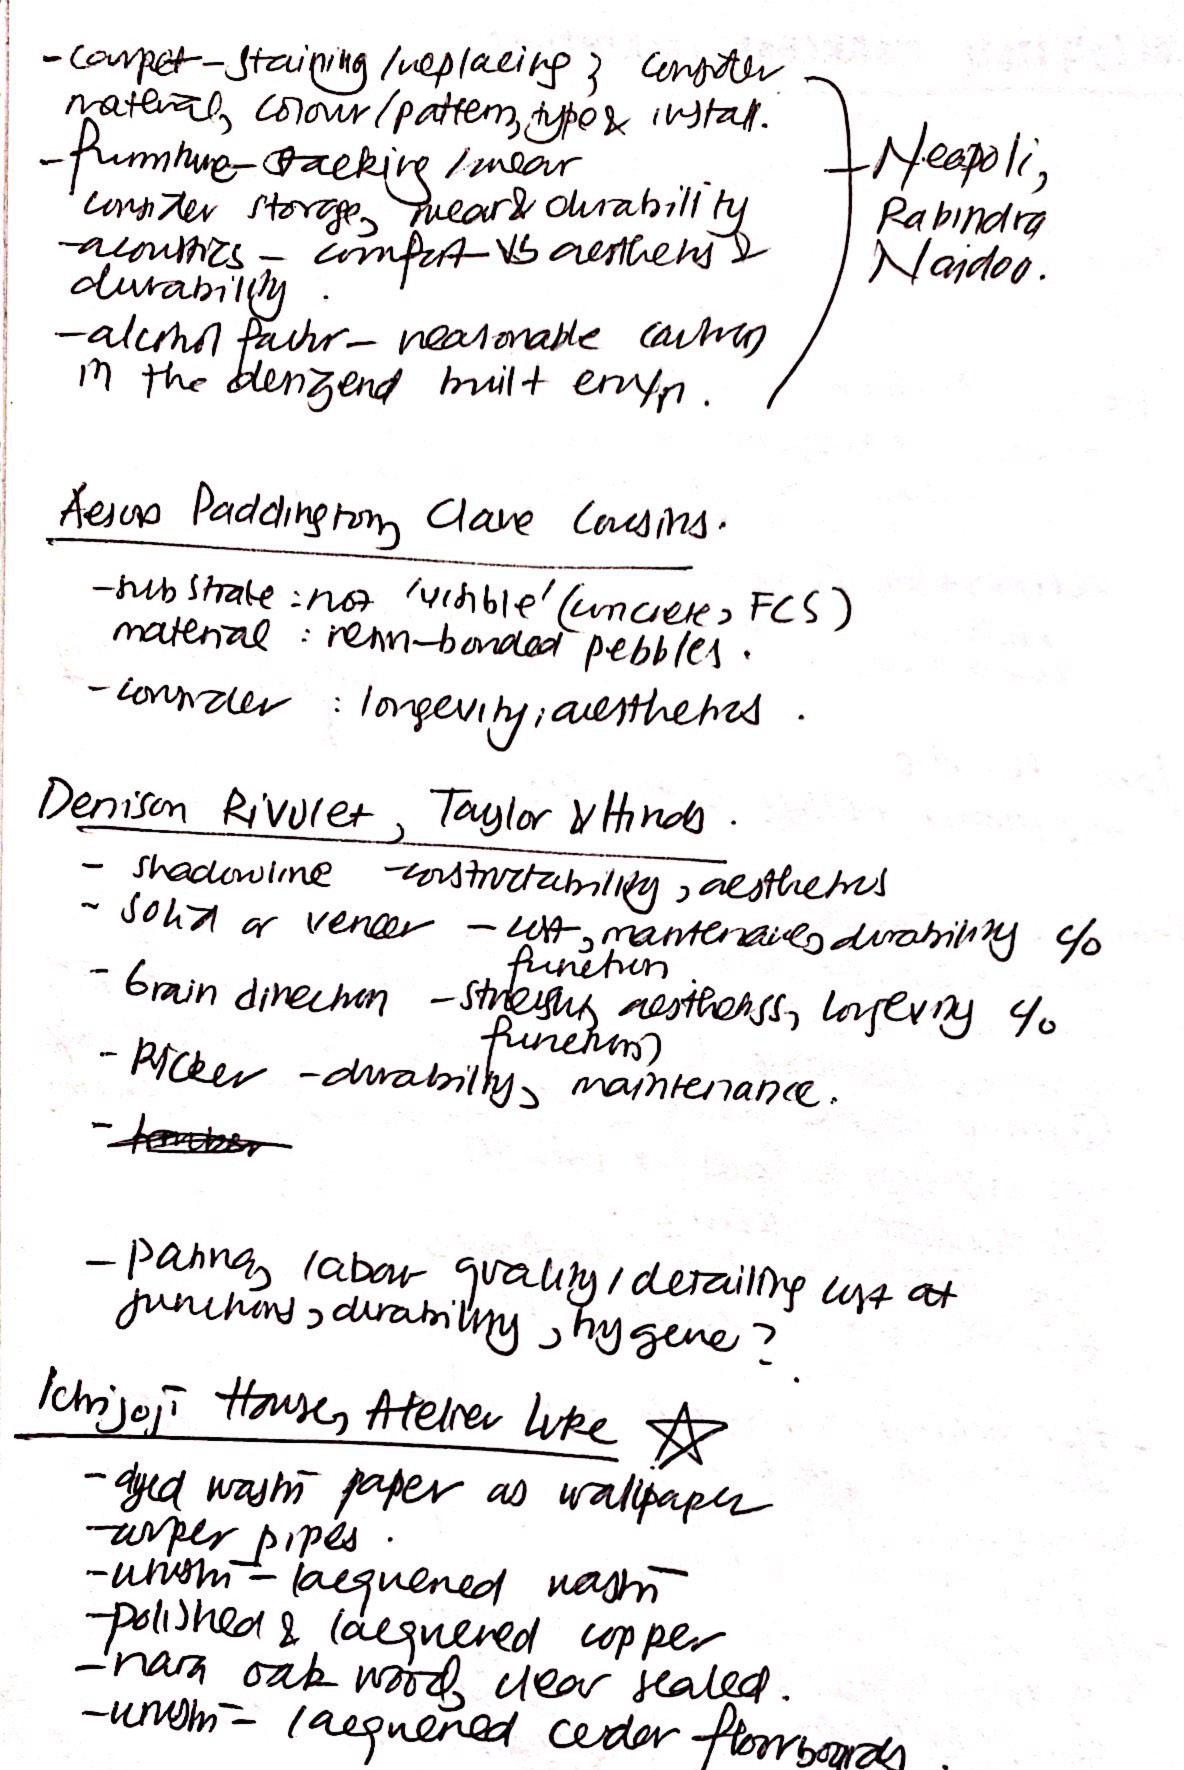 - carpet - staining / replacing ; consider
material, colour / pattern, type & install.
- furniture - stacking / wear
consider storage, wear & durability
- acoustics - comfort VS aesthetics &
durability.
- alcohol factor - reasonable caution
in the designed built env/n.
Neapoli,
Rabindra
Naidoo.
Aesop Paddington, Clare Cousins.
- substrate : not 'visible' (concrete, FCS)
material : resin-bonded pebbles.
- consider : longevity, aesthetics.
Denison Rivulet, Taylor & Hinds.
- shadowline - constructability, aesthetics
- Solid or veneer - cost, maintenance, durability c/o
function
- Grain direction - strength, aesthetics, longevity c/o
function
- Kicker - durability, maintenance.
-
- Patina, labour quality / detailing cost at
junctions, durability, hygene?
Ichijoji House, Atelier Luke
- dyed washi paper as wallpaper
- copper pipes.
- urushi - lacquered washi
- polished & lacquered copper
- nara oak wood, clear sealed.
- urushi - lacquered ceder floorboards.